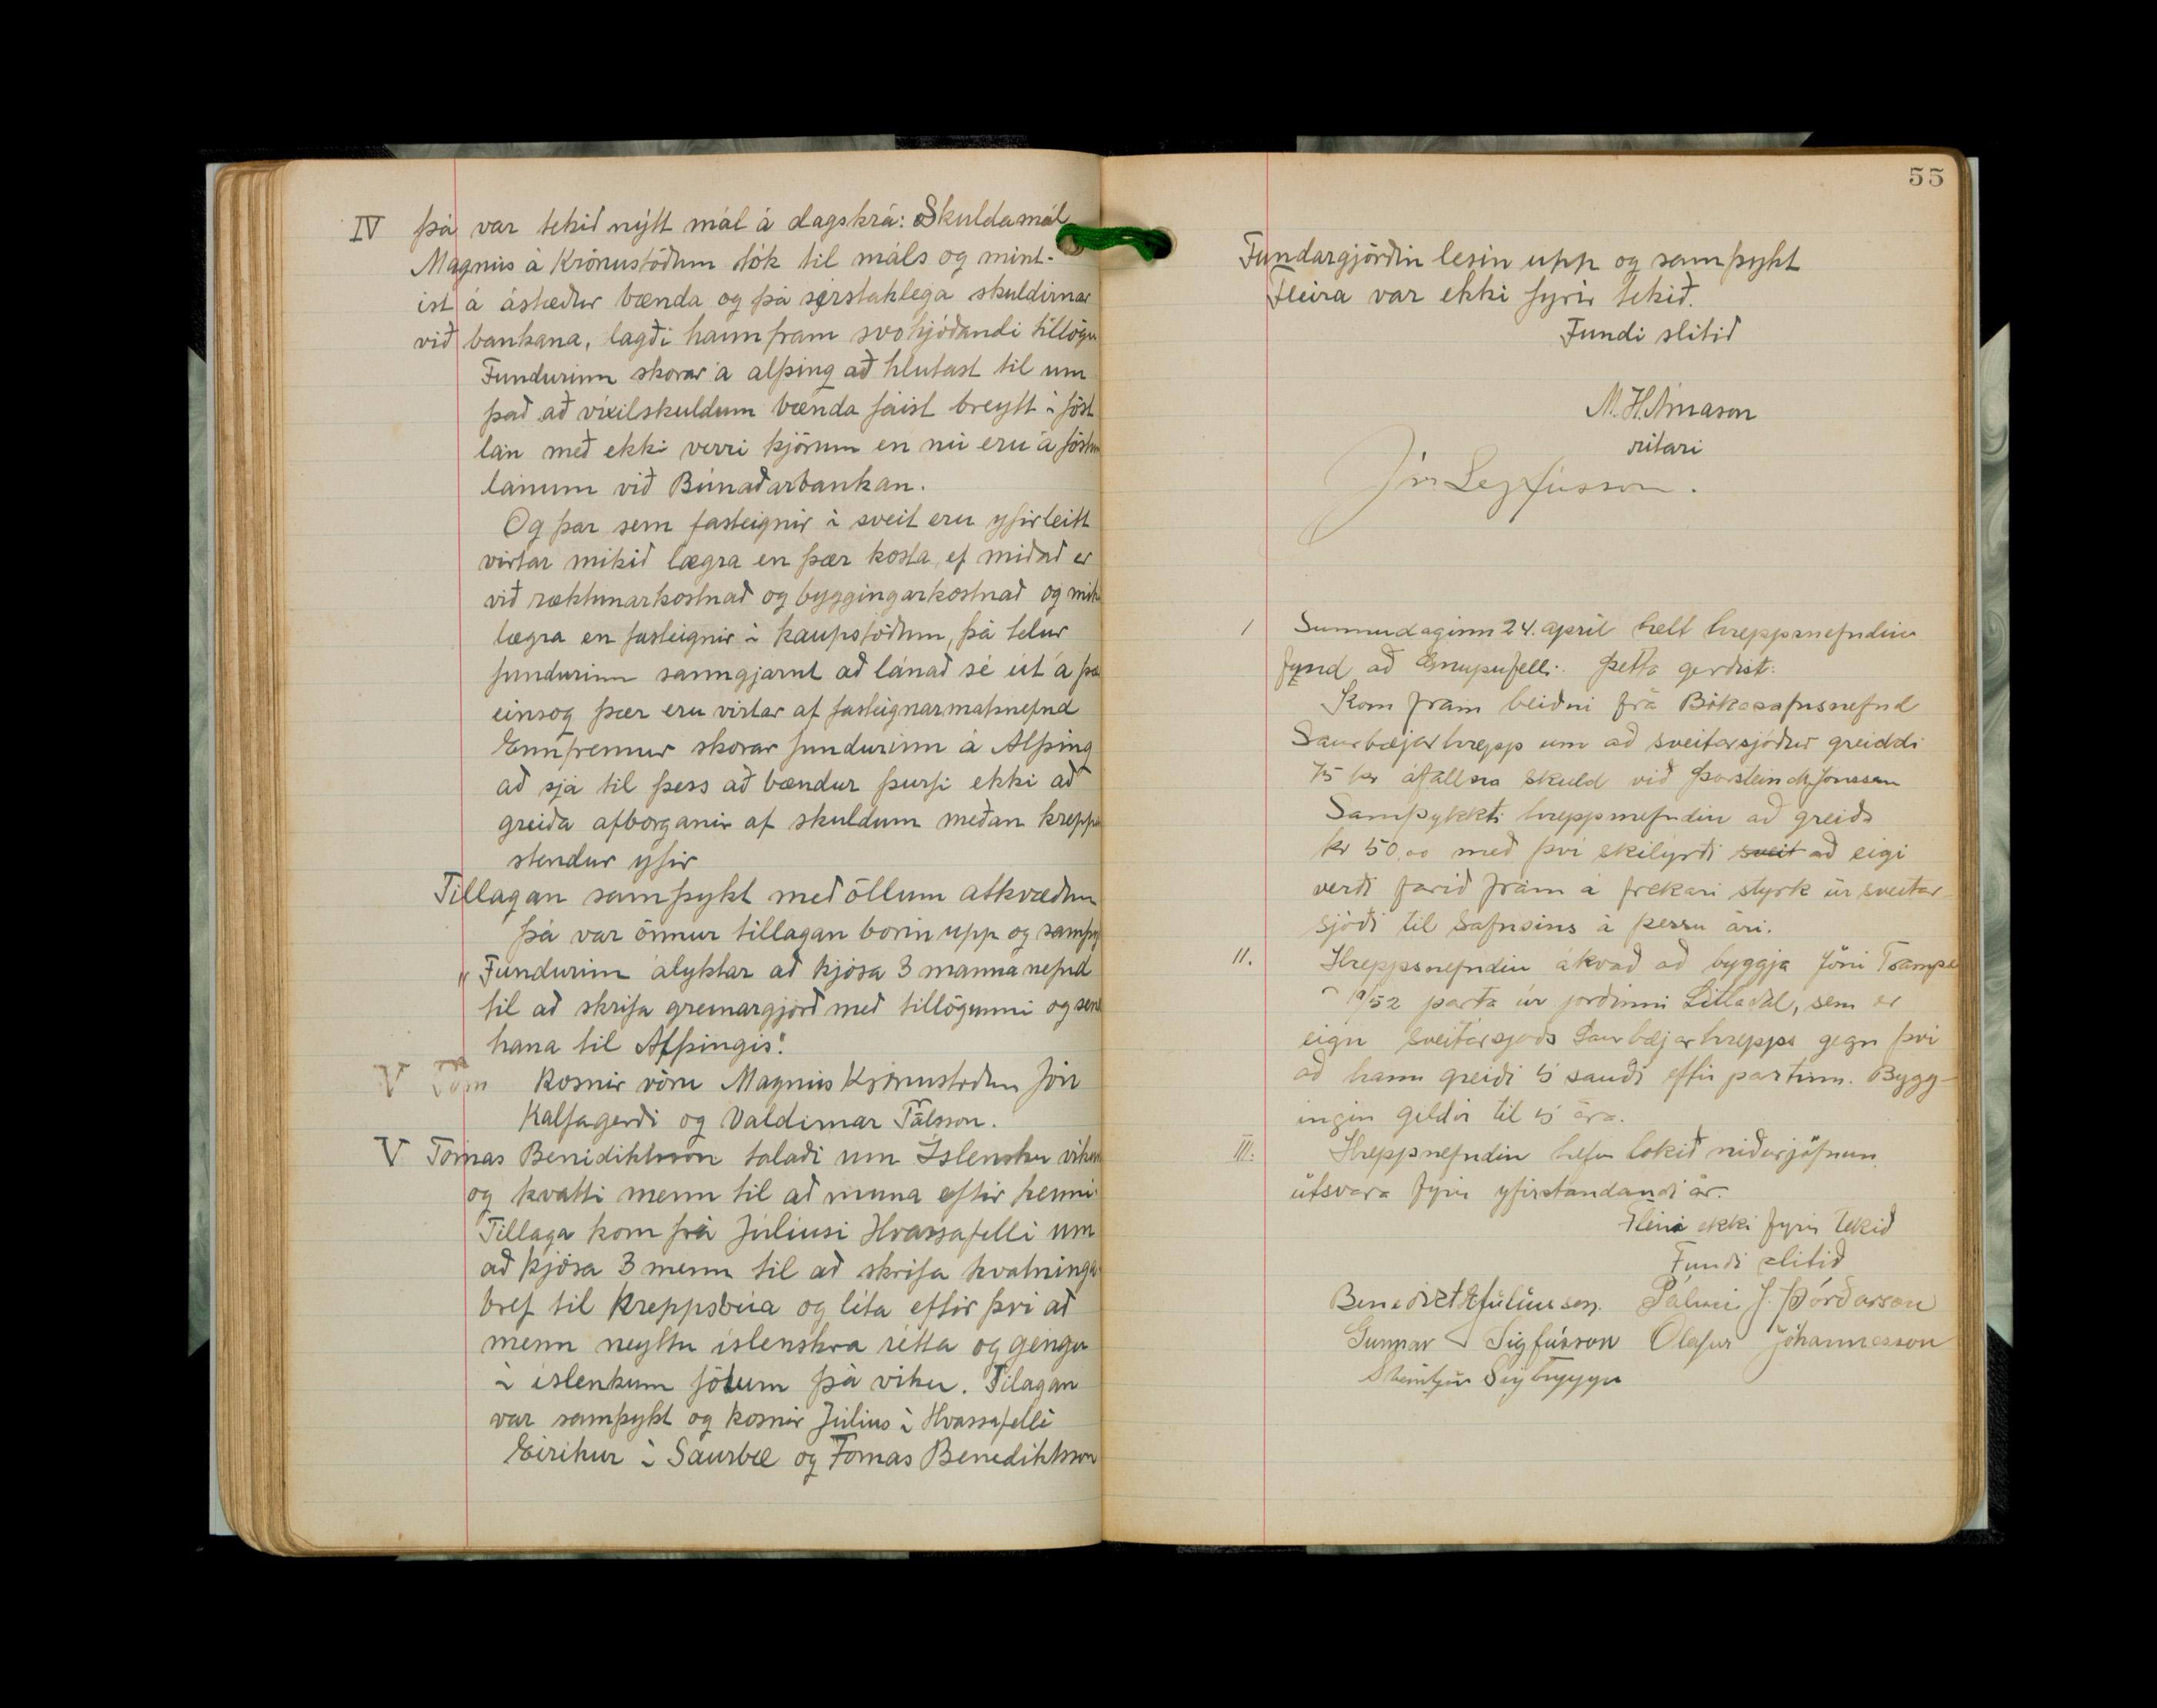 IV þá var tekið nýtt mál á dagskrá: Skuldamál
Magnús á Krónustöðum tók til máls og mint-
ist á ástæður bænda og þá sérstaklega skuldirnar
við bankana, lagði hann fram svohjóðandi tillögu
Fundurinn skorar á alþing að hlutast til um
það að víxilskuldum bænda fáist breytt í föst
lán með ekki verri kjörum en nú eru á föstum
lánum við Búnaðarbankan.
Og þar sem fasteignir í sveit eru yfirleitt
virtar mikið lægra en þær kosta, ef miðað er
við ræktunarkostnað og byggingarkostnað og mik
lægra en fasteignir í kaupstöðum, þá telur
fundurinn sanngjarnt að lánað sé út á þæ
einsog þær eru virtar af fasteignarmatsnefnd
Ennfremur skorar fundurinn á Alþing
að sjá til þess að bændur þurfi ekki að
greiða afborganir af skuldum meðan kreppa
stendur yfir
Tillagan samþykt með öllum atkvæðum
þá var önnur tillagan borin upp og samþy
„Fundurinn ályktar að kjósa 3 manna nefnd
til að skrifa greinargjörð með tillögunni og sen
hana til Alþingis".
V Tóm Kosnir vóru Magnús Krónustöðum Jón
Kálfagerði og Valdimar Pálsson.
V Tómas Benidiktsson talaði um Íslensku vikun
og kvatti menn til að muna eftir henni.
Tillaga kom frá Júlíusi Hvassafelli um
að kjósa 3 menn til að skrifa hvatninga
bref til Kreppsbúa og líta eftir því að
menn neyttu íslenskra rétta og gengu
í íslenkum fötum þá viku. Tilagan
var samþykt og kosnir Júlíus í Hvassafelli
Eiríkur í Saurbæ og Tómas Benediktsson
55
Fundargjörðin lesin upp og samþykt
Fleira var ekki fyrir tekið.
Fundi slitið
M. H. Árnason
ritari
Jón Sigfússon.
1 Sunnudaginn 24. apríl hélt hreppsnefndin
fund að Gnúpufelli. Þetta gerðist:
Kom fram beiðni frá Bókasafnsnefnd
Saurbæjarhrepp um að sveitarsjóður greiddi
75 kr áfallna skuld við Þorstein M Jónsson
Samþykkti hreppsnefndin að greiða
kr 50,00 með því skilyrði sveit að eigi
verði farið fram á frekari styrk úr sveitar-
sjóði til Safnsins á þessu ári.
11. Hreppsnefndin ákvað að byggja Jóni Trampe
19/52 parta úr jörðinni Litladal, sem er
eign sveitarsjóðs Saurbæjarhrepps gegn því
að hann greiði 5 sauði eftir partinn. Bygg-
ingin gildir til 5 ára.
III. Hreppnefndin hefur lokið niðurjöfnun
útsvara fyrir yfirstandandi ár.
Fleira ekki fyrir tekið
Fundi slitið
Benedikt Júlíusson. Pálmi J. Þórðarson
Gunnar Sigfússon Ólafur Jóhannesson